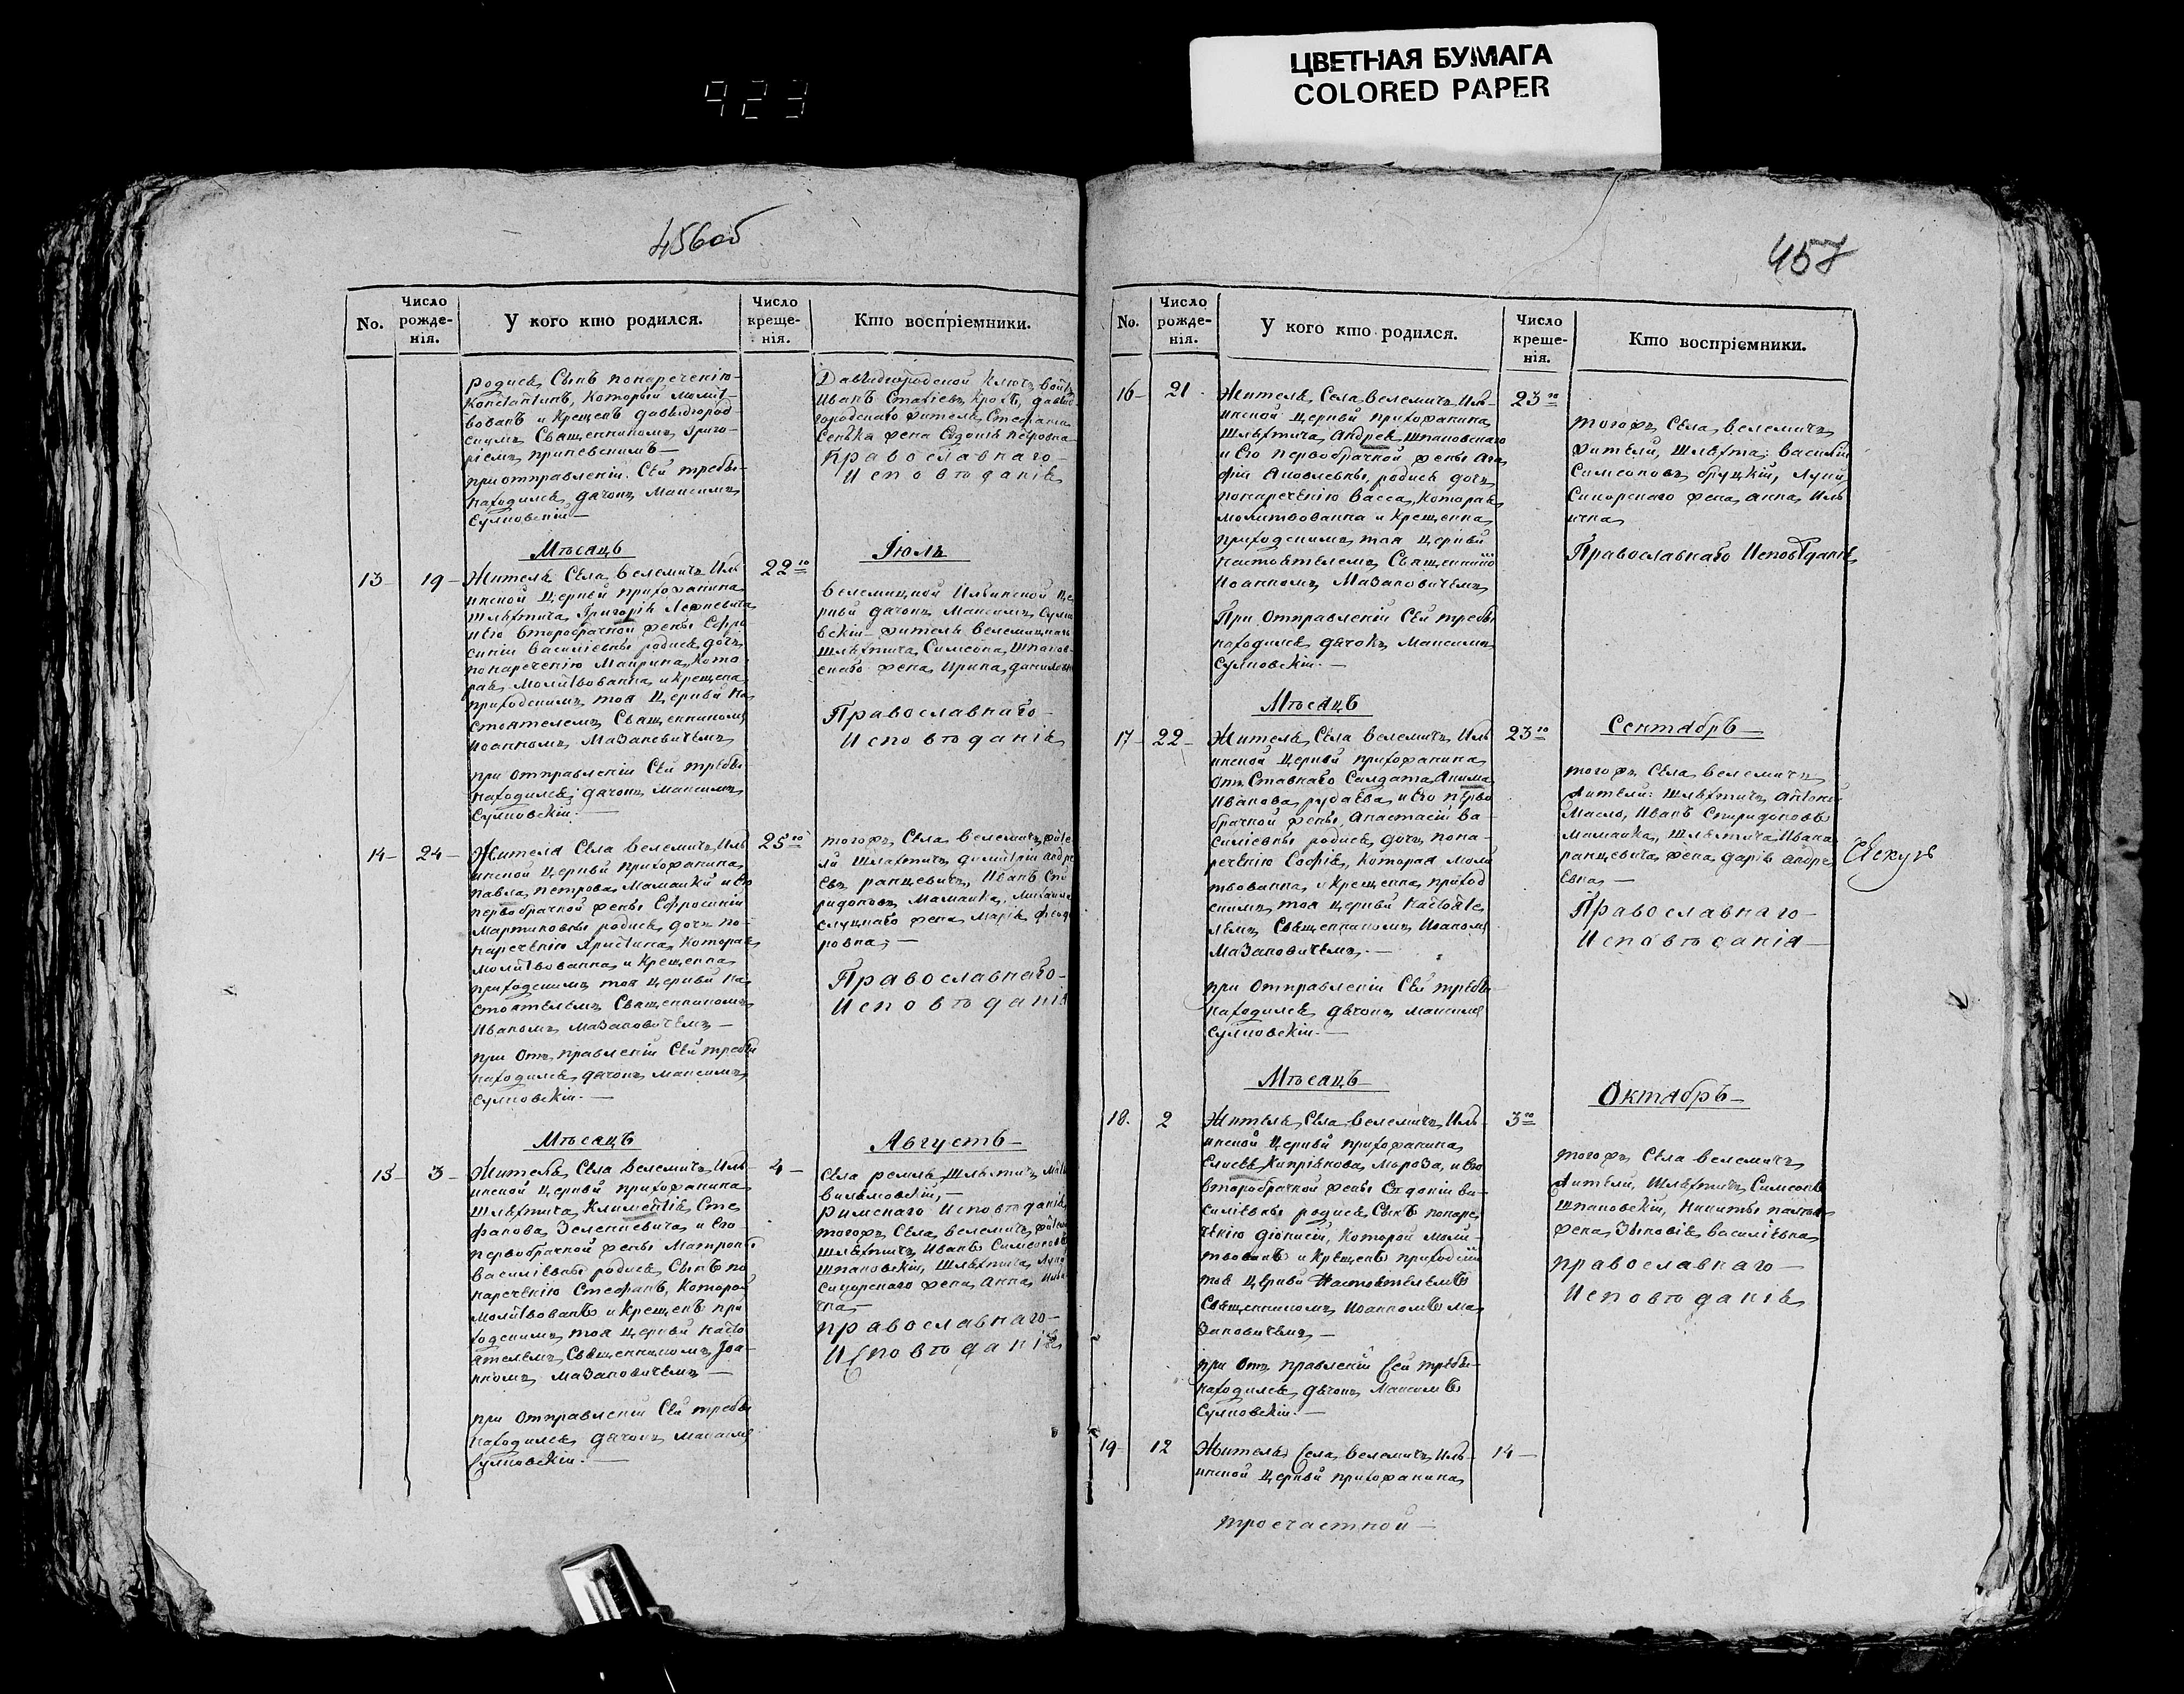 ЦВЕТНАЯ БУМАГА
COLORED PAPER
923
456об
No.
Число рожде-нія.
У кого кто родился.
Число креще-нія.
Кто воспріемники.
родися Сынъ понаречению
Константинъ, Который молит-
вованъ и Крещенъ давыдгород-
скимъ Священникомъ Григо-
ріемъ
приотправленіи Сей требы
находился дячокъ Максимъ
Сулковскій
Ивана
Степана
Сенька жена Евдокія Петровна
Православнаго
Исповѣданія
Мѣсяцъ
Іюль
13
19
Житель Села Велемичъ Иль
инской Церкви прихожанина
Шляхтича Григорія
и Его второбрачной жены Ефро
синіи Василіевны родися дочь
понареченію Макрина, Кото
рая Молитвованна и Крещена
приходскимъ тоя Церкви На
стоятелемъ Священникомъ
Иоанномъ Мазановичемъ
при отправленіи Сей требы
находился дячокъ Максимъ
Сулковскій
22го
Велемицкой Ильинской Це
ркви дячокъ Максимъ Сулко
вскій житель Велемицкаго
Шляхтича Симеона Шпаков-
скаго жена Ирина Данилов
Православнаго
Исповѣданія
14
24
Жителя Села Велемичъ Иль
инской Церкви прихожанина
Павла Петрова Мамайки и Его
первобрачной жены Ефросиніи
Мартиновны родися дочь по
нареченію Христина, Которая
молитвованна и Крещенна
приходскимъ тоя Церкви На
стоятелемъ Священникомъ
Иваномъ Мазановичемъ
при Отправленіи Сей требы
находился дячокъ Максимъ
Сулковскій
25го
тогожъ Села Велемичъ жите
ли Шляхтичъ Димитрій Андре
евъ Ранцевичъ, Иванъ Спи
ридоновъ Мамайка, Михаила
Слуцкаго жена Марія Феодо
ровна
Православнаго
Исповѣданія
Мѣсяцъ
Августъ
15
3
Житель Села Велемичъ Иль
инской Церкви прихожанина
Шляхтича Климентія Сте
фанова Зеленкевича и Его
первобрачной жены Матроны
Василіевны родися Сынъ по
нареченію Стефанъ, Которой
Молитвованъ и Крещенъ при
ходскимъ тоя Церкви Насто
ятелемъ Священникомъ Иоа-
нномъ Мазановичемъ
при Отправленіи Сей требы
находился дячокъ Максимъ
Сулковскій
4
Села Ремля Шляхтичъ
Римскаго Исповѣданія
тогожъ Села Велемичъ жители
Шляхтичъ Иванъ Симеоновъ
Шпаковскій, Шляхтича Луки
Сикорскаго жена Анна Ильи
чна
Православнаго
Исповѣданія
457
No.
Число рожде-нія.
У кого кто родился.
Число креще-нія.
Кто воспріемники.
16
21
Житель Села Велемичъ Иль-
инской Церкви прихожанина
Шляхтича Андрея Шпаковскаго
и Его первобрачной жены Ага
фіи Яковлевны, родися дочь
понареченію Васса, Которая
молитвованна и Крещенна
приходскимъ тоя Церкви
настоятелемъ Священнико
Иоанномъ Мазановичемъ
При Отправленіи Сей требы
находился дячокъ Максимъ
Сулковскій
23го
тогожъ Села Велемичъ
жители, Шляхта: Василій
Симеоновъ Бруцкій, Луки
Сикорскаго жена Анна Иль
ична
Православнаго Исповѣданія
Мѣсяцъ
Сентябръ
17
22
Житель Села Велемичъ Иль
инской Церкви прихожанина
Отъ Ставнаго Салдата Якима
Иванова Рудаева и Его перво
брачной жены Анастасіи Ва-
силіевны родися дочь пона-
реченію Софія, Которая Моли
твованна и Крещенна приход
скимъ тоя Церкви Настояте
лемъ Священникомъ Иоаномъ
Мазановичемъ
при отправленіи Сей требы
находился дячокъ Максимъ
Сулковскій
23го
тогожъ Села Велемичъ
Жители: Шляхтичъ Антоній
Масло, Иванъ Спиридоновъ
Мамайка, Шляхтича Ивана
Ранцевича жена Дарія Андре
евна
Православнаго
Исповѣданія
Мѣсяцъ
Октябръ
18.
2
Житель Села Велемичъ Иль
инской Церкви прихожанина
Елисея Кипріянова Мороза, и Его
второбрачной жены Евдокіи Ва-
силіевны родися Сынъ понаре
ченію Діонисій, Которой Моли-
твованъ и Крещенъ приходским
тоя Церкви Настоятелемъ
Священникомъ Иоанномъ Ма
зановичемъ
при Отправленіи Сей требы
находился дячокъ Максимъ
Сулковскій
3го
тогожъ Села Велемичъ
Жители, Шляхтичъ Симеонъ
Шпаковскій, Никиты
жена Зѣновія Василіевна
Православнаго
Исповѣданія
19
12
Житель Села Велемичъ Иль
инской Церкви прихожанина
14